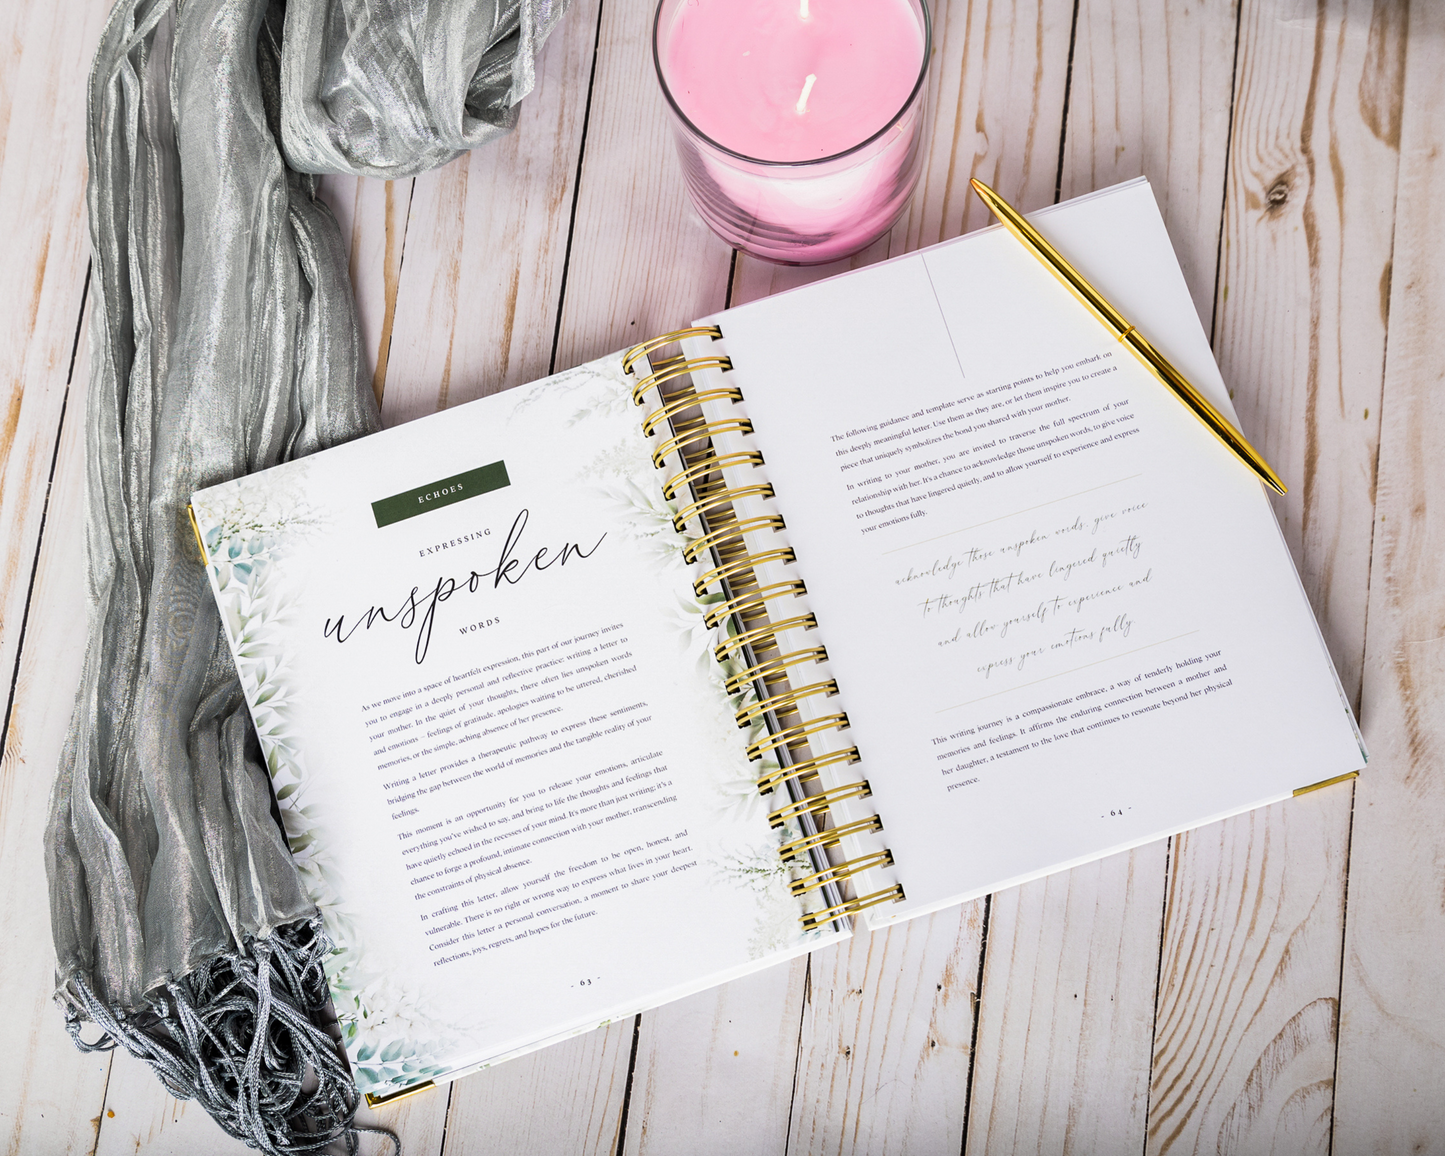 ECHOES
EXPRESSING
unspoken
WORDS
As we move into a space of heartfelt expression, this part of our journey invites
you to engage in a deeply personal and reflective practice: writing a letter to
your mother. In the quiet of your thoughts, there often lies unspoken words
and emotions – feelings of gratitude, apologies waiting to be uttered, cherished
memories, or the simple, aching absence of her presence.
Writing a letter provides a therapeutic pathway to express these sentiments,
bridging the gap between the world of memories and the tangible reality of your
feelings.
This moment is an opportunity for you to release your emotions, articulate
everything you've wished to say, and bring to life the thoughts and feelings that
have quietly echoed in the recesses of your mind. It's more than just writing; it's a
chance to forge a profound, intimate connection with your mother, transcending
the constraints of physical absence.
In crafting this letter, allow yourself the freedom to be open, honest, and
vulnerable. There is no right or wrong way to express what lives in your heart.
Consider this letter a personal conversation, a moment to share your deepest
reflections, joys, regrets, and hopes for the future.
- 63 -
The following guidance and template serve as starting points to help you embark on
this deeply meaningful letter. Use them as they are, or let them inspire you to create a
piece that uniquely symbolizes the bond you shared with your mother.
In writing to your mother, you are invited to traverse the full spectrum of your
relationship with her. It's a chance to acknowledge those unspoken words, to give voice
to thoughts that have lingered quietly, and to allow yourself to experience and express
your emotions fully.
acknowledge those unspoken words, give voice
to thoughts that have lingered quietly
and allow yourself to experience and
express your emotions fully.
This writing journey is a compassionate embrace, a way of tenderly holding your
memories and feelings. It affirms the enduring connection between a mother and
her daughter, a testament to the love that continues to resonate beyond her physical
presence.
- 64 -